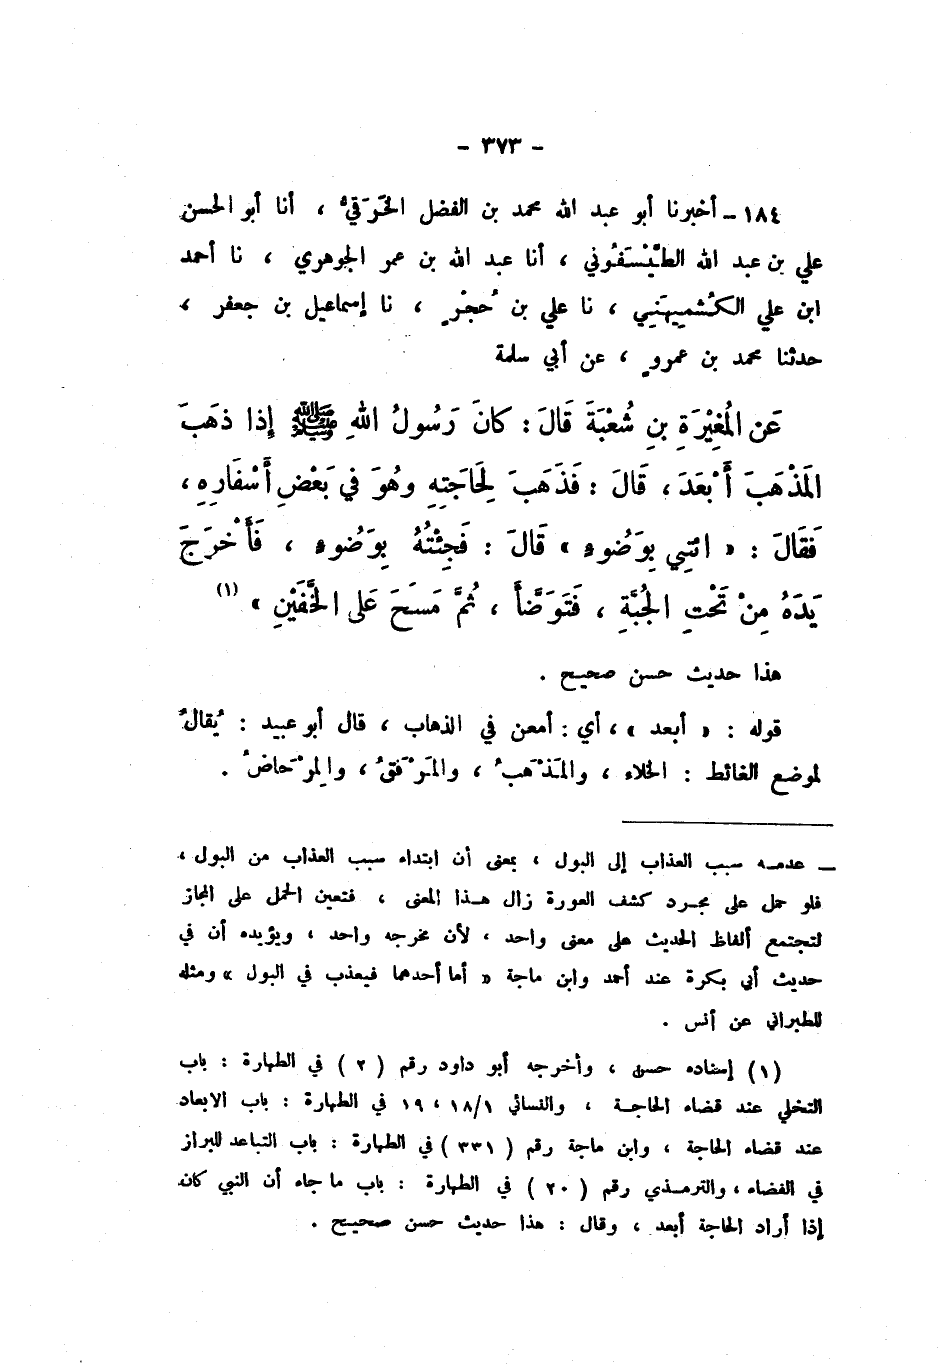 - ٣٧٣ -
١٨٤ - أخبرنا أبو عبد الله محمد بن الفضل الخَرَقيُّ ، أنا أبو الحسن
علي بن عبد الله الطَّيْسَفُوني ، أنا عبد الله بن عمر الجوهري ، نا أحمد
ابن علي الكُشميهَني ، نا علي بن حُجْرٍ ، نا إسماعيل بن جعفر ،
حدثنا محمد بن عمروٍ ، عن أبي سلمة
عَنِ المُغِيْرَةِ بنِ شُعْبَةَ قَالَ : كانَ رَسُولُ اللهِ ﷺ إذا ذهَبَ
المَذْهَبَ أَبْعَدَ ، قَالَ : فَذَهَبَ لِحَاجَتِهِ وهُوَ في بَعْضِ أَسْفَارِهِ ،
فَقَالَ : « ائتِني بِوَضُوءٍ » قَالَ : فَجِئْتُهُ بِوَضُوءٍ ، فَأَخْرَجَ
يَدَهُ مِنْ تَحْتِ الجُبَّةِ ، فَتَوَضَّأَ ، ثُمَّ مَسَحَ عَلى الخُفَّيْنِ » (١)
هذا حديث حسن صحيح .
قوله : « أبعد » ، أي : أمعن في الذهاب ، قال أبو عبيد : يُقالُ
لموضع الغائط : الخلاء ، والمَذْهَبُ ، والمَرْفَقُ ، والمِرْحَاضُ .
ــ عدمه سبب العذاب إلى البول ، بمعنى أن ابتداء سبب العذاب من البول ،
فلو حمل على مجرد كشف العورة زال هذا المعنى ، فتعين الحمل على المجاز
لتجتمع ألفاظ الحديث على معنى واحد ، لأن مخرجه واحد ، ويؤيده أن في
حديث أبي بكرة عند أحمد وابن ماجة « أما أحدهما فيعذب في البول » ومثله
للطبراني عن أنس .
(١) إسناده حسن ، وأخرجه أبو داود رقم ( ٢ ) في الطهارة : باب
التخلي عند قضاء الحاجة ، والنسائي ١٨/١ ، ١٩ في الطهارة : باب الابعاد
عند قضاء الحاجة ، وابن ماجة رقم ( ٣٣١ ) في الطهارة : باب التباعد للبراز
في الفضاء ، والترمذي رقم ( ٢٠ ) في الطهارة : باب ما جاء أن النبي كان
إذا أراد الحاجة أبعد ، وقال : هذا حديث حسن صحيح .